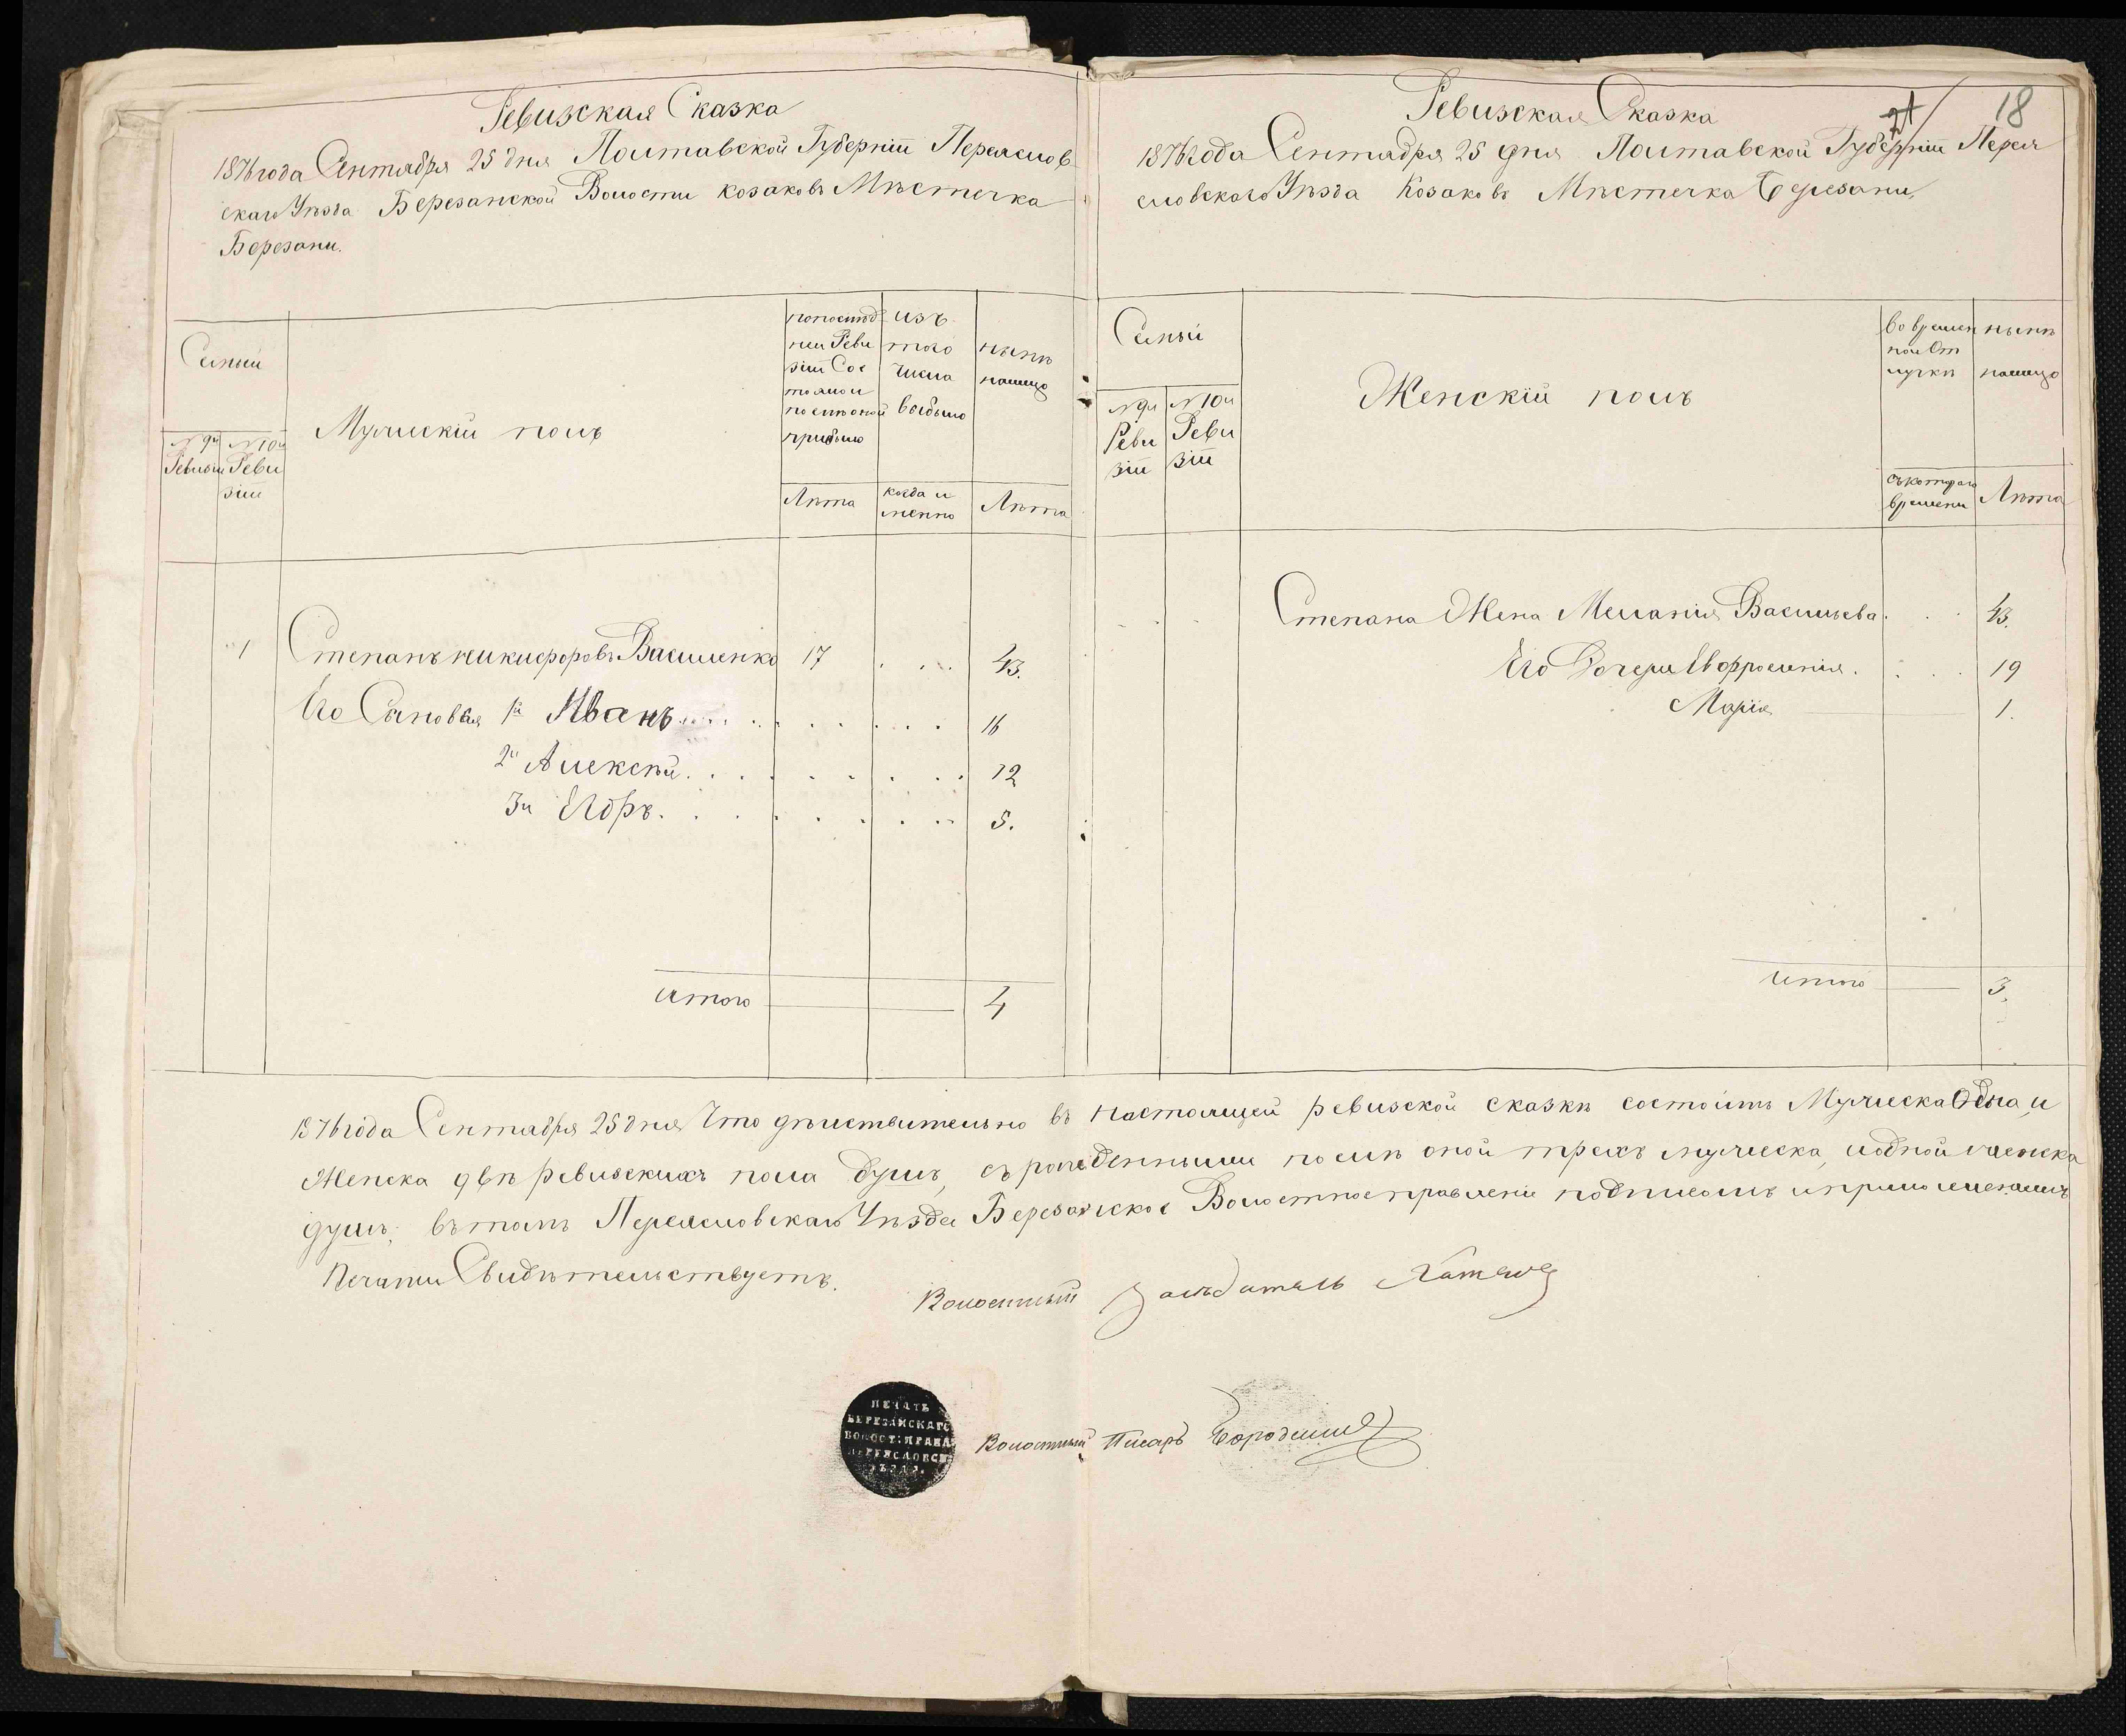 Ревизская Сказка
1876 года Сентября 25 дня Полтавской Губерніи Переяслов
скаго Уѣзда Березанской Волости козаковъ Мѣстечка
Березани.
Семьи
№ 9й
Ревизіи
№ 10й
Реви
зіи
Мужискій полъ
попослѣд
ней Реви
зіи Сос
тояло и
послѣ оной
прибыло
Лѣта
изъ
того
числа
выбыло
когда и
менно
нынѣ
налицо
Лѣта
1 Степанъ Никифоровъ Василенко 17 43.
Его Сыновья 1й Иванъ 16
2й Алексѣй 12
3й Егоръ 5.
итого 4
Ревизская Сказка
21 18
1876 года Сентября 25 дня Полтавской Губерніи Перея
словского Уѣзда Козаковъ Мѣстечка Березани,
Семьи
№ 9й
Реви
зіи
№ 10й
Реви
зіи
Женскій полъ
во времен
ной От
лучкѣ
съкотораго
времени
нынѣ
налицо
Лѣта
Степана Жена Меланія Васильева 43.
Его Дочери Евфросинія 19
Марія 1.
итого 3.
1876 года Сентября 25 дня Что дѣиствительно въ настоящей ревизской сказкѣ состоитъ Мужеска Одна, и
Женска двѣ ревизскихъ пола душъ, съ рожденными послѣ оной трехъ мужеска, иодной женска
душъ; въ томъ Переясловскаго Уѣзда Березанское Волостное правленіе подписомъ иприложеніемъ
печати Свидѣтельствуетъ.
Волостный Засѣдатель
Волостный Писарь
ПЕЧАТЬ
БЕРЕЗАНСКАГО
ВОЛОСТ: ПРАВЛ
ПЕРЕЯСЛОВСК
УѢЗДА.